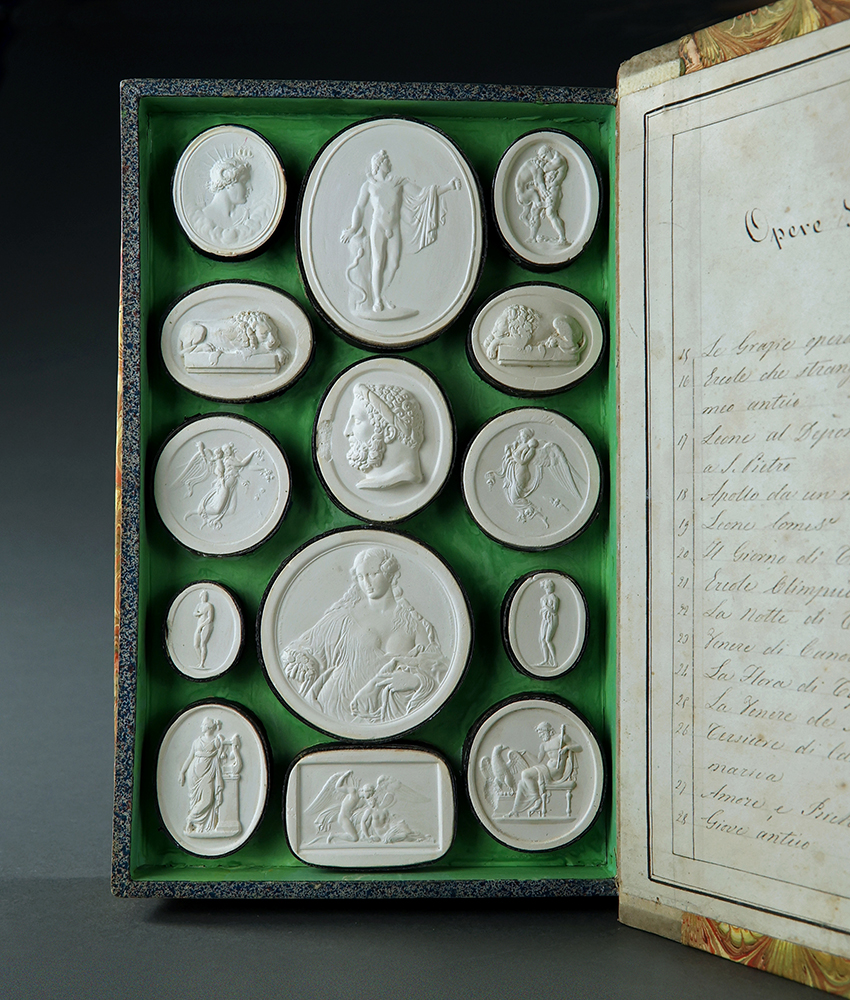 Opere
15 Le Grazie opera
16 Ercole che strang
meo antico
17 Leone al Depos
a S. Pietro
18 Apollo da un
19 Leone
20 Il Giorno di
21 Ercole Olimpico
22 La Notte di
23 Venere di Cano
24 La Flora di
25 La Venere de
26 di
27 Amore e
28 Giove antico